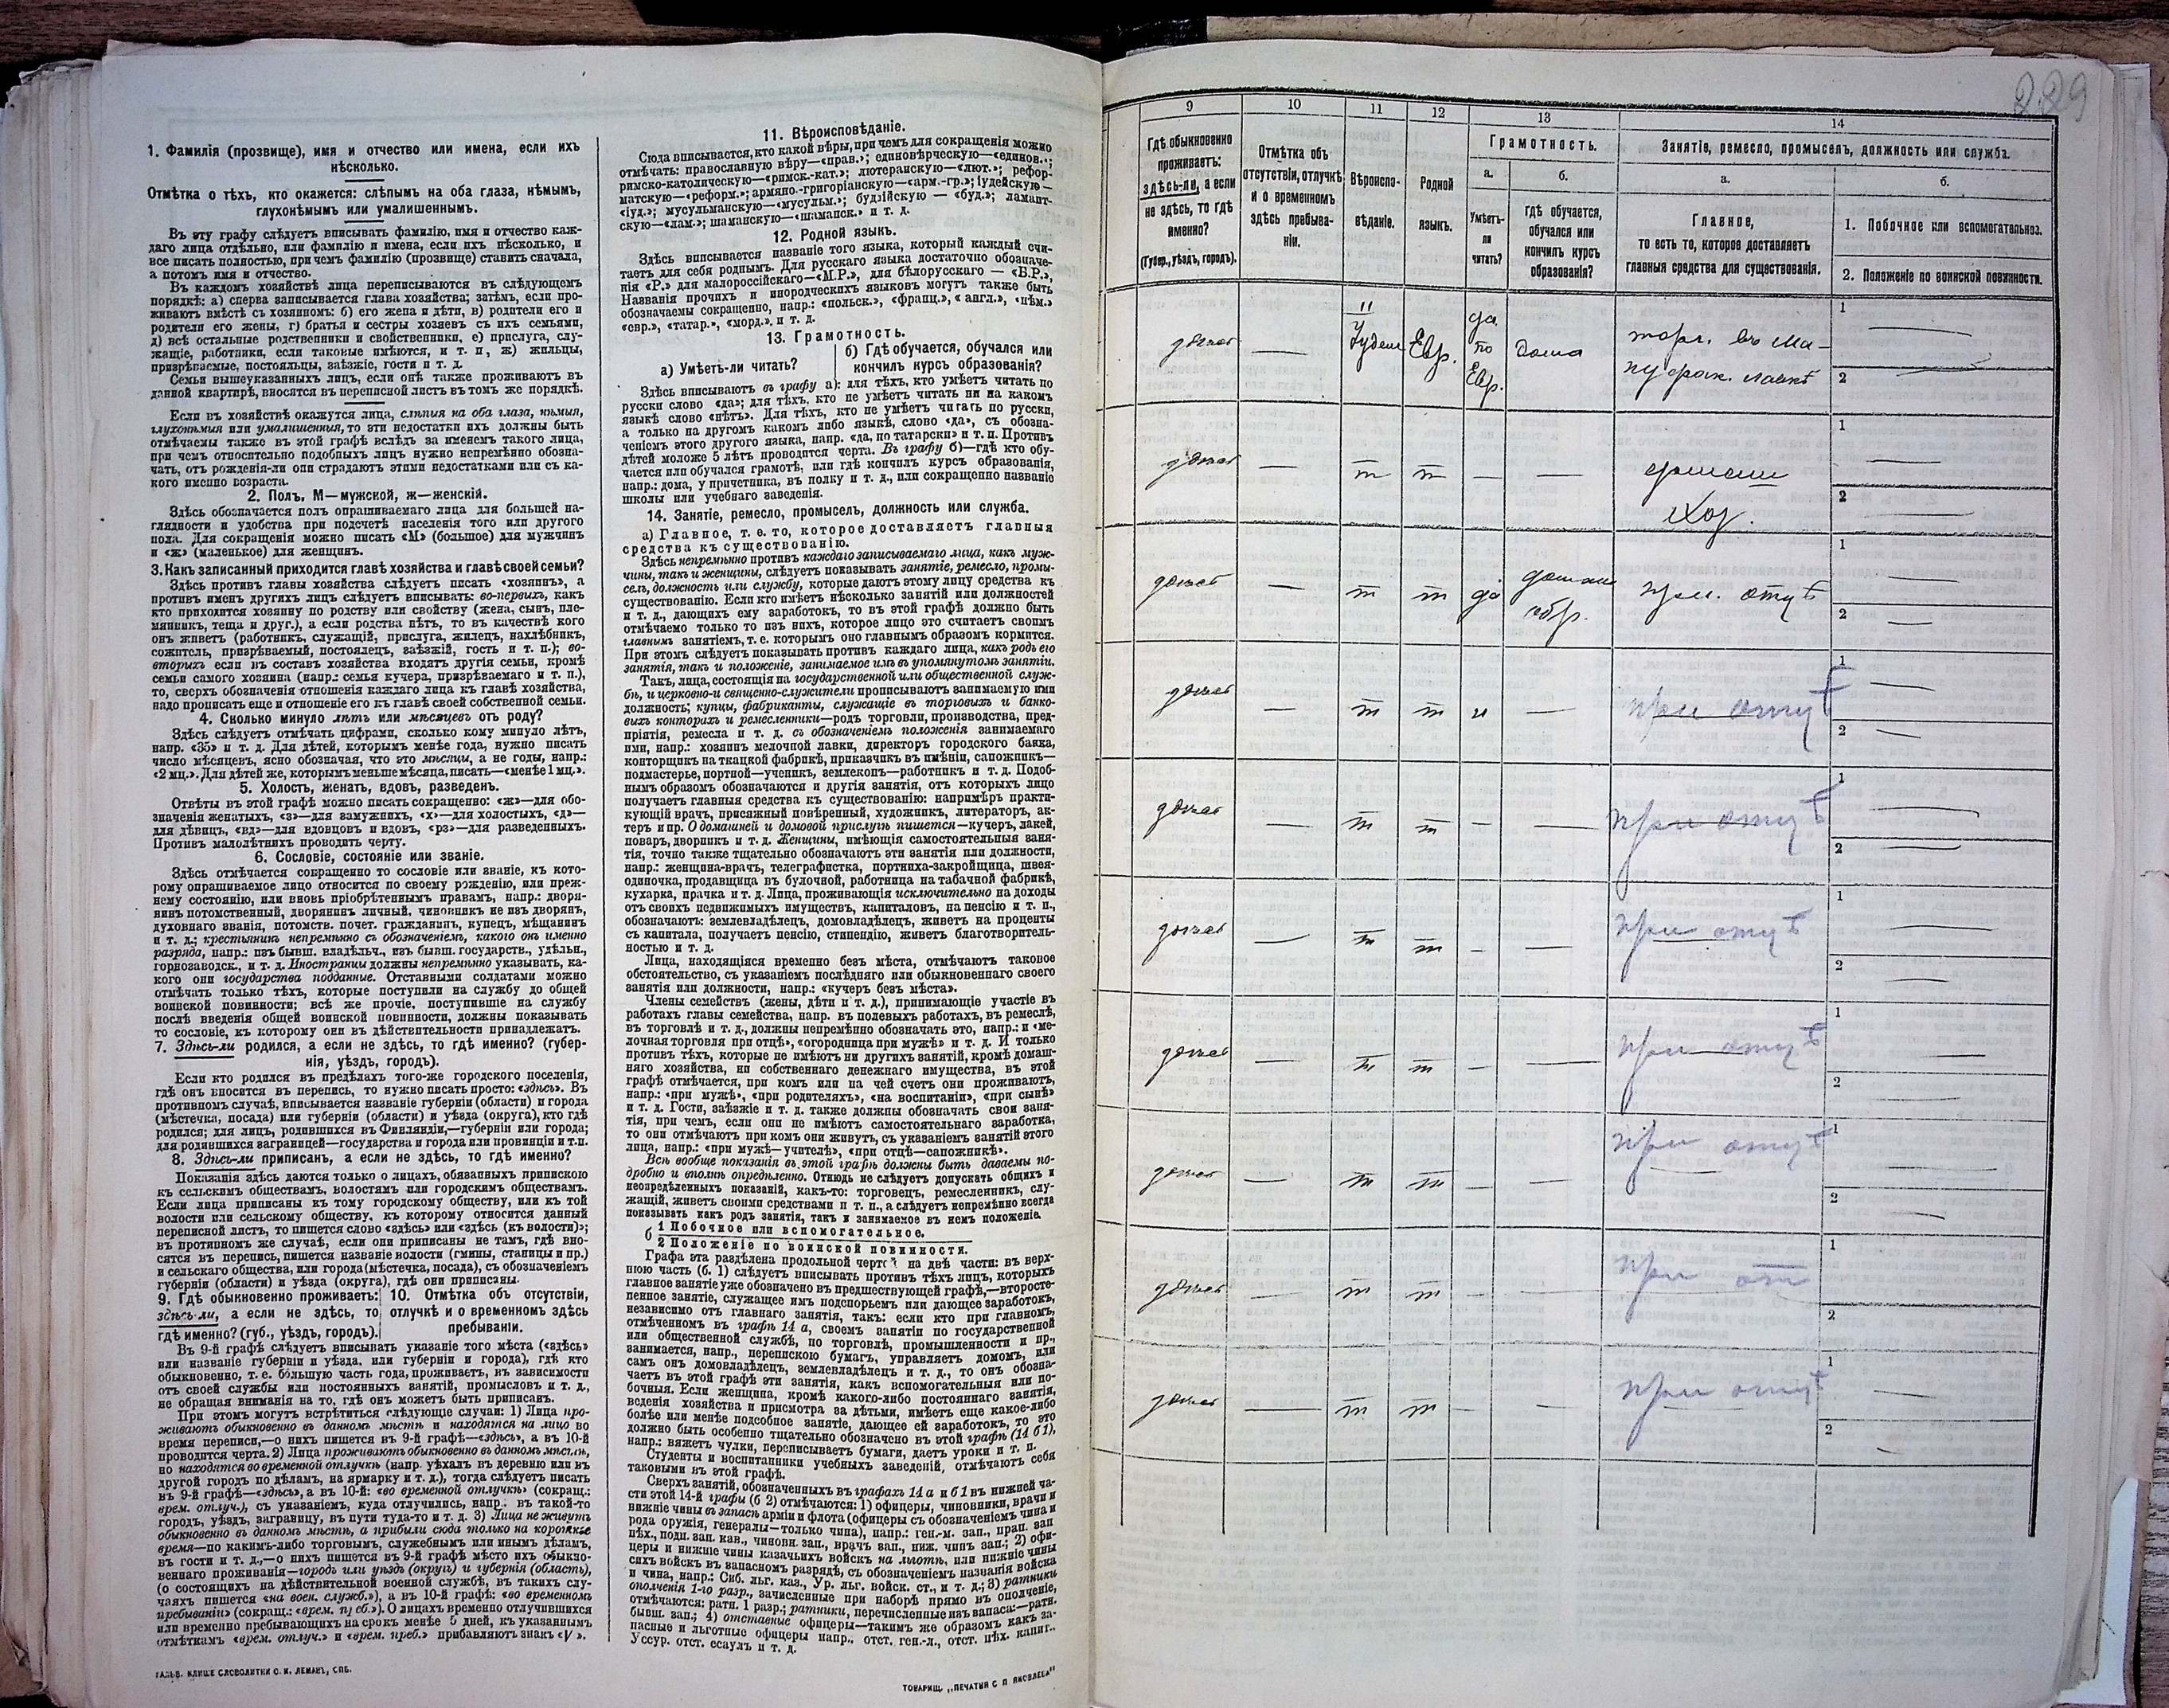 1. Фамилія (прозвище), имя и отчество или имена, если ихъ
нѣсколько.
Отмѣтка о тѣхъ, кто окажется: слѣпымъ на оба глаза, нѣмымъ,
глухонѣмымъ или умалишеннымъ.
Въ эту графу слѣдуетъ вписывать фамилію, имя и отчество каж-
даго лица отдѣльно, или фамилію и имена, если ихъ нѣсколько, и
все писать полностью, при чемъ фамилію (прозвище) ставить сначала,
а потомъ имя и отчество.
Въ каждомъ хозяйствѣ лица переписываются въ слѣдующемъ
порядкѣ: а) сперва записывается глава хозяйства; затѣмъ, если про-
живаютъ вмѣстѣ съ хозяиномъ: б) его жена и дѣти, в) родители его и
родители его жены, г) братья и сестры хозяевъ съ ихъ семьями,
д) всѣ остальные родственники и свойственники, е) прислуга, слу-
жащіе, работники, если таковые имѣются, и т. п., ж) жильцы,
призрѣваемые, постояльцы, заѣзжіе, гости и т. д.
Семьи вышеуказанныхъ лицъ, если онѣ также проживаютъ въ
данной квартирѣ, вносятся въ переписной листъ въ томъ же порядкѣ.
Если въ хозяйствѣ окажутся лица, слѣпыя на оба глаза, нѣмыя,
глухонѣмыя или умалишенныя, то эти недостатки ихъ должны быть
отмѣчаемы также въ этой графѣ вслѣдъ за именемъ такого лица,
при чемъ относительно подобныхъ лицъ нужно непремѣнно обозна-
чать, отъ рожденія-ли они страдаютъ этими недостатками или съ ка-
кого именно возраста.
2. Полъ, М—мужской, ж—женскій.
Здѣсь обозначается полъ опрашиваемаго лица для большей на-
глядности и удобства при подсчетѣ населенія того или другого
пола. Для сокращенія можно писать «М» (большое) для мужчинъ
и «ж» (маленькое) для женщинъ.
3. Какъ записанный приходится главѣ хозяйства и главѣ своей семьи?
Здѣсь противъ главы хозяйства слѣдуетъ писать «хозяинъ», а
противъ именъ другихъ лицъ слѣдуетъ вписывать: во-первыхъ, какъ
кто приходится хозяину по родству или свойству (жена, сынъ, пле-
мянникъ, теща и друг.), а если родства нѣтъ, то въ качествѣ кого
онъ живетъ (работникъ, служащій, прислуга, жилецъ, нахлѣбникъ,
сожитель, призрѣваемый, постоялецъ, заѣзжій, гость и т. п.); во-
вторыхъ если въ составъ хозяйства входятъ другія семьи, кромѣ
семьи самого хозяина (напр.: семья кучера, призрѣваемаго и т. п.),
то, сверхъ обозначенія отношенія каждаго лица къ главѣ хозяйства,
надо прописать еще и отношеніе его къ главѣ своей собственной семьи.
4. Сколько минуло лѣтъ или мѣсяцевъ отъ роду?
Здѣсь слѣдуетъ отмѣчать цифрами, сколько кому минуло лѣтъ,
напр. «35» и т. д. Для дѣтей, которымъ менѣе года, нужно писать
число мѣсяцевъ, ясно обозначая, что это мѣсяцы, а не годы, напр.:
«2 мц.». Для дѣтей же, которымъ меньше мѣсяца, писать—«менѣе 1 мц.».
5. Холостъ, женатъ, вдовъ, разведенъ.
Отвѣты въ этой графѣ можно писать сокращенно: «ж»—для обо-
значенія женатыхъ, «з»—для замужнихъ, «х»—для холостыхъ, «д»—
для дѣвицъ, «вд»—для вдовцовъ и вдовъ, «рз»—для разведенныхъ.
Противъ малолѣтнихъ проводить черту.
6. Сословіе, состояніе или званіе.
Здѣсь отмѣчается сокращенно то сословіе или званіе, къ кото-
рому опрашиваемое лицо относится по своему рожденію, или преж-
нему состоянію, или вновь пріобрѣтеннымъ правамъ, напр.: дворя-
нинъ потомственный, дворянинъ личный, чиновникъ не изъ дворянъ,
духовнаго званія, потомств. почет. гражданинъ, купецъ, мѣщанинъ
и т. д.; крестьянинъ непремѣнно съ обозначеніемъ, какого онъ именно
разряда, напр.: изъ бывш. владѣльч., изъ бывш. государств., удѣльн.,
горнозаводск., и т. д. Иностранцы должны непремѣнно указывать, ка-
кого они государства подданные. Отставными солдатами можно
отмѣчать только тѣхъ, которые поступили на службу до общей
воинской повинности; всѣ же прочіе, поступившіе на службу
послѣ введенія общей воинской повинности, должны показывать
то сословіе, къ которому они въ дѣйствительности принадлежатъ.
7. Здѣсь-ли родился, а если не здѣсь, то гдѣ именно? (губер-
нія, уѣздъ, городъ).
Если кто родился въ предѣлахъ того-же городского поселенія,
гдѣ онъ вносится въ перепись, то нужно писать просто: «здѣсь». Въ
противномъ случаѣ, вписывается названіе губерніи (области) и города
(мѣстечка, посада) или губерніи (области) и уѣзда (округа), кто гдѣ
родился; для лицъ, родившихся въ Финляндіи,—губерніи или города;
для родившихся заграницей—государства и города или провинціи и т.п.
8. Здѣсь-ли приписанъ, а если не здѣсь, то гдѣ именно?
Показанія здѣсь даются только о лицахъ, обязанныхъ припискою
къ сельскимъ обществамъ, волостямъ или городскимъ обществамъ.
Если лица приписаны къ тому городскому обществу, или къ той
волости или сельскому обществу, къ которому относится данный
переписной листъ, то пишется слово «здѣсь» или «здѣсь (къ волости)»;
въ противномъ же случаѣ, если они приписаны не тамъ, гдѣ вно-
сятся въ перепись, пишется названіе волости (гмины, станицы и пр.)
и сельскаго общества, или города (мѣстечка, посада), съ обозначеніемъ
губерніи (области) и уѣзда (округа), гдѣ они приписаны.
9. Гдѣ обыкновенно проживаетъ:
здѣсь-ли, а если не здѣсь, то
гдѣ именно? (губ., уѣздъ, городъ).
10. Отмѣтка объ отсутствіи,
отлучкѣ и о временномъ здѣсь
пребываніи.
Въ 9-й графѣ слѣдуетъ вписывать указаніе того мѣста («здѣсь»
или названіе губерніи и уѣзда, или губерніи и города), гдѣ кто
обыкновенно, т. е. бо́льшую часть года, проживаетъ, въ зависимости
отъ своей службы или постоянныхъ занятій, промысловъ и т. д.,
не обращая вниманія на то, гдѣ онъ можетъ быть приписанъ.
При этомъ могутъ встрѣтиться слѣдующіе случаи: 1) Лица про-
живаютъ обыкновенно въ данномъ мѣстѣ и находятся на лицо во
время переписи,—о нихъ пишется въ 9-й графѣ—«здѣсь», а въ 10-й
проводится черта. 2) Лица проживаютъ обыкновенно въ данномъ мѣстѣ,
но находятся во временной отлучкѣ (напр. уѣхалъ въ деревню или въ
другой городъ по дѣламъ, на ярмарку и т. д.), тогда слѣдуетъ писать
въ 9-й графѣ—«здѣсь», а въ 10-й: «во временной отлучкѣ» (сокращ.:
врем. отлуч.), съ указаніемъ, куда отлучились, напр.: въ такой-то
городъ, уѣздъ, заграницу, въ пути туда-то и т. д. 3) Лица не живутъ
обыкновенно въ данномъ мѣстѣ, а прибыли сюда только на короткое
время—по какимъ-либо торговымъ, служебнымъ или инымъ дѣламъ,
въ гости и т. д.,—о нихъ пишется въ 9-й графѣ мѣсто ихъ обыкно-
веннаго проживанія—городъ или уѣздъ (округъ) и губернія (область),
(о состоящихъ на дѣйствительной военной службѣ, въ такихъ слу-
чаяхъ пишется «на воен. служб.»), а въ 10-й графѣ: «во временномъ
пребываніи» (сокращ.: «врем. преб.»). О лицахъ временно отлучившихся
или временно пребывающихъ на срокъ менѣе 5 дней, къ указаннымъ
отмѣткамъ «врем. отлуч.» и «врем. преб.» прибавляютъ знакъ «V».
ГАЛЬВ. КЛИШЕ СЛОВОЛИТНИ О. И. ЛЕМАНЪ, СПБ.
11. Вѣроисповѣданіе.
Сюда вписывается, кто какой вѣры, при чемъ для сокращенія можно
отмѣчать: православную вѣру—«прав.»; единовѣрческую—«единов.»;
римско-католическую—«римск.-кат.»; лютеранскую—«лют.»; рефор-
матскую—«реформ.»; армяно-григоріанскую—«арм.-гр.»; іудейскую—
«іуд.»; мусульманскую—«мусульм.»; буддійскую — «буд.»; ламаит-
скую—«лам.»; шаманскую—«шаманск.» и т. д.
12. Родной языкъ.
Здѣсь вписывается названіе того языка, который каждый счи-
таетъ для себя роднымъ. Для русскаго языка достаточно обозначе-
нія «Р.» для малороссійскаго—«М.Р.», для бѣлорусскаго — «Б.Р.»,
Названія прочихъ и инородческихъ языковъ могутъ также быть
обозначаемы сокращенно, напр.: «польск.», «франц.», « англ.», «нѣм.»
«евр.», «татар.», «морд.». и т. д.
13. Грамотность.
а) Умѣетъ-ли читать?
б) Гдѣ обучается, обучался или
кончилъ курсъ образованія?
Здѣсь вписываютъ въ графу а): для тѣхъ, кто умѣетъ читать по
русски слово «да»; для тѣхъ, кто не умѣетъ читать ни на какомъ
языкѣ слово «нѣтъ». Для тѣхъ, кто не умѣетъ читать по русски,
а только на другомъ какомъ либо языкѣ, слово «да», съ обозна-
ченіемъ этого другого языка, напр. «да, по татарски» и т. п. Противъ
дѣтей моложе 5 лѣтъ проводится черта. Въ графу б)—гдѣ кто обу-
чается или обучался грамотѣ, или гдѣ кончилъ курсъ образованія,
напр.: дома, у причетника, въ полку и т. д., или сокращенно названіе
школы или учебнаго заведенія.
14. Занятіе, ремесло, промыселъ, должность или служба.
а) Главное, т. е. то, которое доставляетъ главныя
средства къ существованію.
Здѣсь непремѣнно противъ каждаго записываемаго лица, какъ муж-
чины, такъ и женщины, слѣдуетъ показывать занятіе, ремесло, промы-
селъ, должность или службу, которые даютъ этому лицу средства къ
существованію. Если кто имѣетъ нѣсколько занятій или должностей
и т. д., дающихъ ему заработокъ, то въ этой графѣ должно быть
отмѣчаемо только то изъ нихъ, которое лицо это считаетъ своимъ
главнымъ занятіемъ, т. е. которымъ оно главнымъ образомъ кормится.
При этомъ слѣдуетъ показывать противъ каждаго лица, какъ родъ его
занятія, такъ и положеніе, занимаемое имъ въ упомянутомъ занятіи.
Такъ, лица, состоящія на государственной или общественной служ-
бѣ, и церковно-и священно-служители прописываютъ занимаемую ими
должность; купцы, фабриканты, служащіе въ торговыхъ и банко-
выхъ конторахъ и ремесленники—родъ торговли, производства, пред-
пріятія, ремесла и т. д. съ обозначеніемъ положенія занимаемаго
ими, напр.: хозяинъ мелочной лавки, директоръ городского банка,
конторщикъ на ткацкой фабрикѣ, приказчикъ въ имѣніи, сапожникъ—
подмастерье, портной—ученикъ, землекопъ—работникъ и т. д. Подоб-
нымъ образомъ обозначаются и другія занятія, отъ которыхъ лицо
получаетъ главныя средства къ существованію: напримѣръ практи-
кующій врачъ, присяжный повѣренный, художникъ, литераторъ, ак-
теръ и пр. О домашней и домовой прислугѣ пишется—кучеръ, лакей,
поваръ, дворникъ и т. д. Женщины, имѣющія самостоятельныя заня-
тія, точно также тщательно обозначаютъ эти занятія или должности,
напр.: женщина-врачъ, телеграфистка, портниха-закройщица, швея-
одиночка, продавщица въ булочной, работница на табачной фабрикѣ,
кухарка, прачка и т. д. Лица, проживающія исключительно на доходы
отъ своихъ недвижимыхъ имуществъ, капиталовъ, на пенсію и т. п.,
обозначаютъ: землевладѣлецъ, домовладѣлецъ, живетъ на проценты
съ капитала, получаетъ пенсію, стипендію, живетъ благотворитель-
ностью и т. д.
Лица, находящіяся временно безъ мѣста, отмѣчаютъ таковое
обстоятельство, съ указаніемъ послѣдняго или обыкновеннаго своего
занятія или должности, напр.: «кучеръ безъ мѣста».
Члены семействъ (жены, дѣти и т. д.), принимающіе участіе въ
работахъ главы семейства, напр. въ полевыхъ работахъ, въ ремеслѣ,
въ торговлѣ и т. д., должны непремѣнно обозначать это, напр.: и «ме-
лочная торговля при отцѣ», «огородница при мужѣ» и т. д. И только
противъ тѣхъ, которые не имѣютъ ни другихъ занятій, кромѣ домаш-
няго хозяйства, ни собственнаго денежнаго имущества, въ этой
графѣ отмѣчается, при комъ или на чей счетъ они проживаютъ,
напр.: «при мужѣ», «при родителяхъ», «на воспитаніи», «при сынѣ»
и т. д. Гости, заѣзжіе и т. д. также должны обозначать свои заня-
тія, при чемъ, если они не имѣютъ самостоятельнаго заработка,
то они отмѣчаютъ при комъ они живутъ, съ указаніемъ занятій этого
лица, напр.: «при мужѣ—учителѣ», «при отцѣ—сапожникѣ».
Всѣ вообще показанія въ этой графѣ должны быть даваемы по-
дробно и вполнѣ опредѣленно. Отнюдь не слѣдуетъ допускать общихъ и
неопредѣленныхъ показаній, какъ-то: торговецъ, ремесленникъ, слу-
жащій, живетъ своими средствами и т. п., а слѣдуетъ непремѣнно всегда
показывать какъ родъ занятія, такъ и занимаемое въ немъ положеніе.
б 1 Побочное или вспомогательное.
2 Положеніе по воинской повинности.
Графа эта раздѣлена продольной чертой на двѣ части: въ верх-
нюю часть (б. 1) слѣдуетъ вписывать противъ тѣхъ лицъ, которыхъ
главное занятіе уже обозначено въ предшествующей графѣ,—второсте-
пенное занятіе, служащее имъ подспорьемъ или дающее заработокъ,
независимо отъ главнаго занятія, такъ: если кто при главномъ,
отмѣченномъ въ графѣ 14 а, своемъ занятіи по государственной
или общественной службѣ, по торговлѣ, промышленности и пр.,
занимается, напр., перепискою бумагъ, управляетъ домомъ, или
самъ онъ домовладѣлецъ, землевладѣлецъ и т. д., то онъ обозна-
чаетъ въ этой графѣ эти занятія, какъ вспомогательныя или по-
бочныя. Если женщина, кромѣ какого-либо постояннаго занятія,
веденія хозяйства и присмотра за дѣтьми, имѣетъ еще какое-либо
болѣе или менѣе подсобное занятіе, дающее ей заработокъ, то это
должно быть особенно тщательно обозначено въ этой графѣ (14 б1),
напр.: вяжетъ чулки, переписываетъ бумаги, даетъ уроки и т. п.
Студенты и воспитанники учебныхъ заведеній, отмѣчаютъ себя
таковыми въ этой графѣ.
Сверхъ занятій, обозначенныхъ въ графахъ 14 а и б1 въ нижней ча-
сти этой 14-й графы (б 2) отмѣчаются: 1) офицеры, чиновники, врачи и
нижніе чины въ запасѣ арміи и флота (офицеры съ обозначеніемъ чина и
рода оружія, генералы—только чина), напр.: ген.-м. зап., прап. зап
пѣх., подп. зап. кав., чиновн. зап., врачъ зап., ниж. чинъ зап.; 2) офи-
церы и нижніе чины казачьихъ войскъ на льготѣ, или нижніе чины
сихъ войскъ въ запасномъ разрядѣ, съ обозначеніемъ названія войска
и чина, напр.: Сиб. льг. каз., Ур. льг. войск. ст., и т. д.; 3) ратники
ополченія 1-го разр., зачисленные при наборѣ прямо въ ополченіе,
отмѣчаются: ратн. 1 разр.; ратники, перечисленные изъ запаса:—ратн.
бывш. зап.; 4) отставные офицеры—такимъ же образомъ какъ за-
пасные и льготные офицеры напр., отст. ген.-л., отст. пѣх. капит.,
Уссур. отст. есаулъ и т. д.
ТОВАРИЩ. „ПЕЧАТНЯ С П ЯКОВЛЕВА"
229
9 10 11 12 13 14
Гдѣ обыкновенно
проживаетъ:
здѣсь-ли, а если
не здѣсь, то гдѣ
именно?
(Губер., уѣздъ, городъ).
Отмѣтка объ
отсутствіи, отлучкѣ
и о временномъ
здѣсь пребыва-
ніи.
Вѣроиспо-
вѣданіе.
Родной
языкъ.
Грамотность.
а.
Умѣетъ-
ли
читать?
б.
Гдѣ обучается,
обучался или
кончилъ курсъ
образованія?
Занятіе, ремесло, промыселъ, должность или служба.
а.
Главное,
то есть то, которое доставляетъ
главныя средства для существованія.
б.
1. Побочное или вспомогательное.
2. Положеніе по воинской повинности.
здѣсь — Іудей Евр. да по Евр. дома торг. въ Ма-
нуфак. лавкѣ 1 — 2 —
здѣсь — т т — — домашн.
хоз. 1 — 2 —
здѣсь — т т да домашн.
обр. при отцѣ 1 — 2 —
здѣсь — т т н — при отцѣ 1 — 2 —
здѣсь — т т — — при отцѣ 1 — 2 —
здѣсь — т т — — при отцѣ 1 — 2 —
здѣсь — т т — — при отцѣ 1 — 2 —
здѣсь — т т — — при отцѣ 1 — 2 —
здѣсь — т т — — при от 1 2
здѣсь — т т — — при отцѣ 1 — 2 —